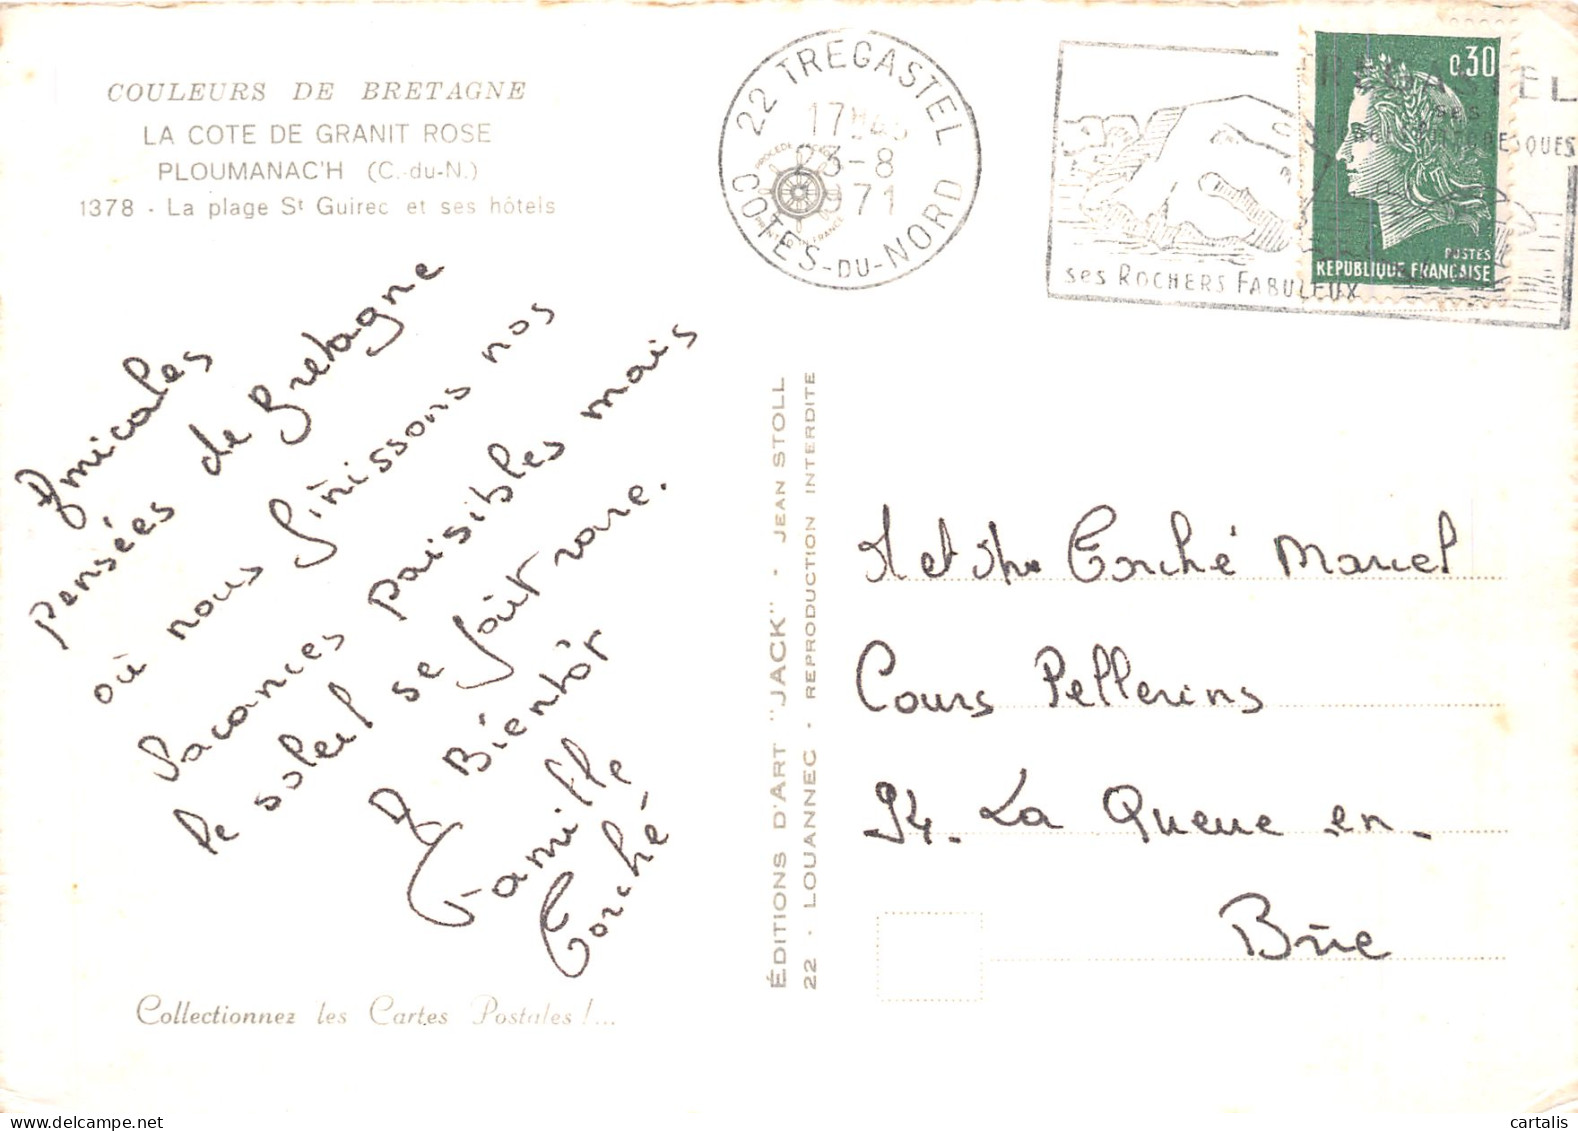 COULEURS DE BRETAGNE
LA COTE DE GRANIT ROSE
PLOUMANAC'H (C.-du-N.)
1378 - La plage St Guirec et ses hôtels
Amicales
pensées de Bretagne
où nous finissons nos
vacances paisibles mais
le soleil se fait rare.
A Bientôt
Famille
Corché
Collectionnez les Cartes Postales !...
ÉDITIONS D'ART "JACK" - JEAN STOLL
22 - LOUANNEC - REPRODUCTION INTERDITE
22 TREGASTEL
17H45
23-8
1971
COTES-DU-NORD
TREGASTEL
SES
ses ROCHERS FABULEUX
0,30
POSTES
REPUBLIQUE FRANÇAISE
M et Mme Corché Marcel
Cours Pellerins
94. La Queue en-
Brie
cartalis